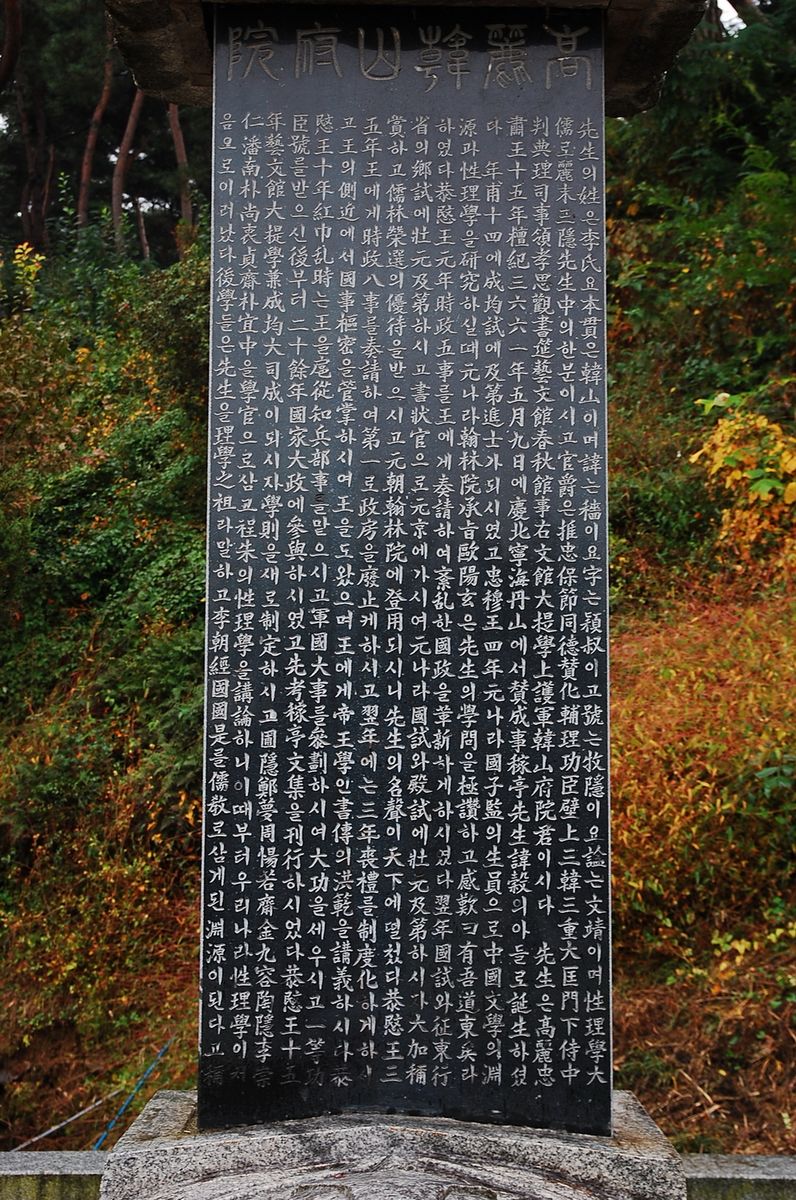 高麗韓山府院
先生의姓은李氏요本貫은韓山이며諱는穡이요字는穎叔이고號는牧隱이요謚는文靖이며性理學大
儒로麗末三隱先生中의한분이시고官爵은推忠保節同德贊化輔理功臣壁上三韓三重大匡門下侍中
判典理司事領孝思觀書筵藝文館春秋館事右文館大提學上護軍韓山府院君이시다 先生은高麗忠
肅王十五年檀紀三六六一年五月九日에慶北寧海丹山에서贊成事稼亭先生諱穀의아들로誕生하셨
다 年甫十四에成均試에及第進士가되시였고忠穆王四年元나라國子監의生員으로中國文學의淵
源과性理學을研究하실때元나라翰林院承旨歐陽玄은先生의學問을極讚하고感歎曰有吾道東矣라
하였다恭愍王元年時政五事를王에게奏請하여紊乱한國政을革新하게하시였다翌年國試와征東行
省의鄕試에壯元及第하시고書狀官으로元京에가시여元나라國試와殿試에壯元及第하시
賞하고儒林榮選의優待을받으시고元朝翰林院에登用되시니先生의名聲이天下에떨첬다恭愍王二
五年王에게時政八事를奏請하여第一로政房을廢止게하시고翌年에는三年喪禮를制度化하게하
고王의側近에서國事樞密을管掌하시여王을도왔으며王에게帝王學인書傳의洪範을講義하시다恭
愍王十年紅巾乱時는王을扈從知兵部事를맡으시고軍國大事를參劃하시여大功을세우시고一等功
臣號를받으신後부터二十餘年國家大政에參與하시였고先考稼亭文集을刊行하시었다恭愍王十五
年藝文館大提學兼成均大司成이되시자學則을새로制定하시고圃隱鄭夢周惕若齋金九容陶隱李崇
仁潘南朴尙衷貞齋朴宜中을學官으로삼고程朱의性理學을講論하니이때부터우리나라性理學이
음으로이러났다後學들은先生을理學之祖라말하고李朝經國國是를儒敎로삼게된淵源이된다고稱